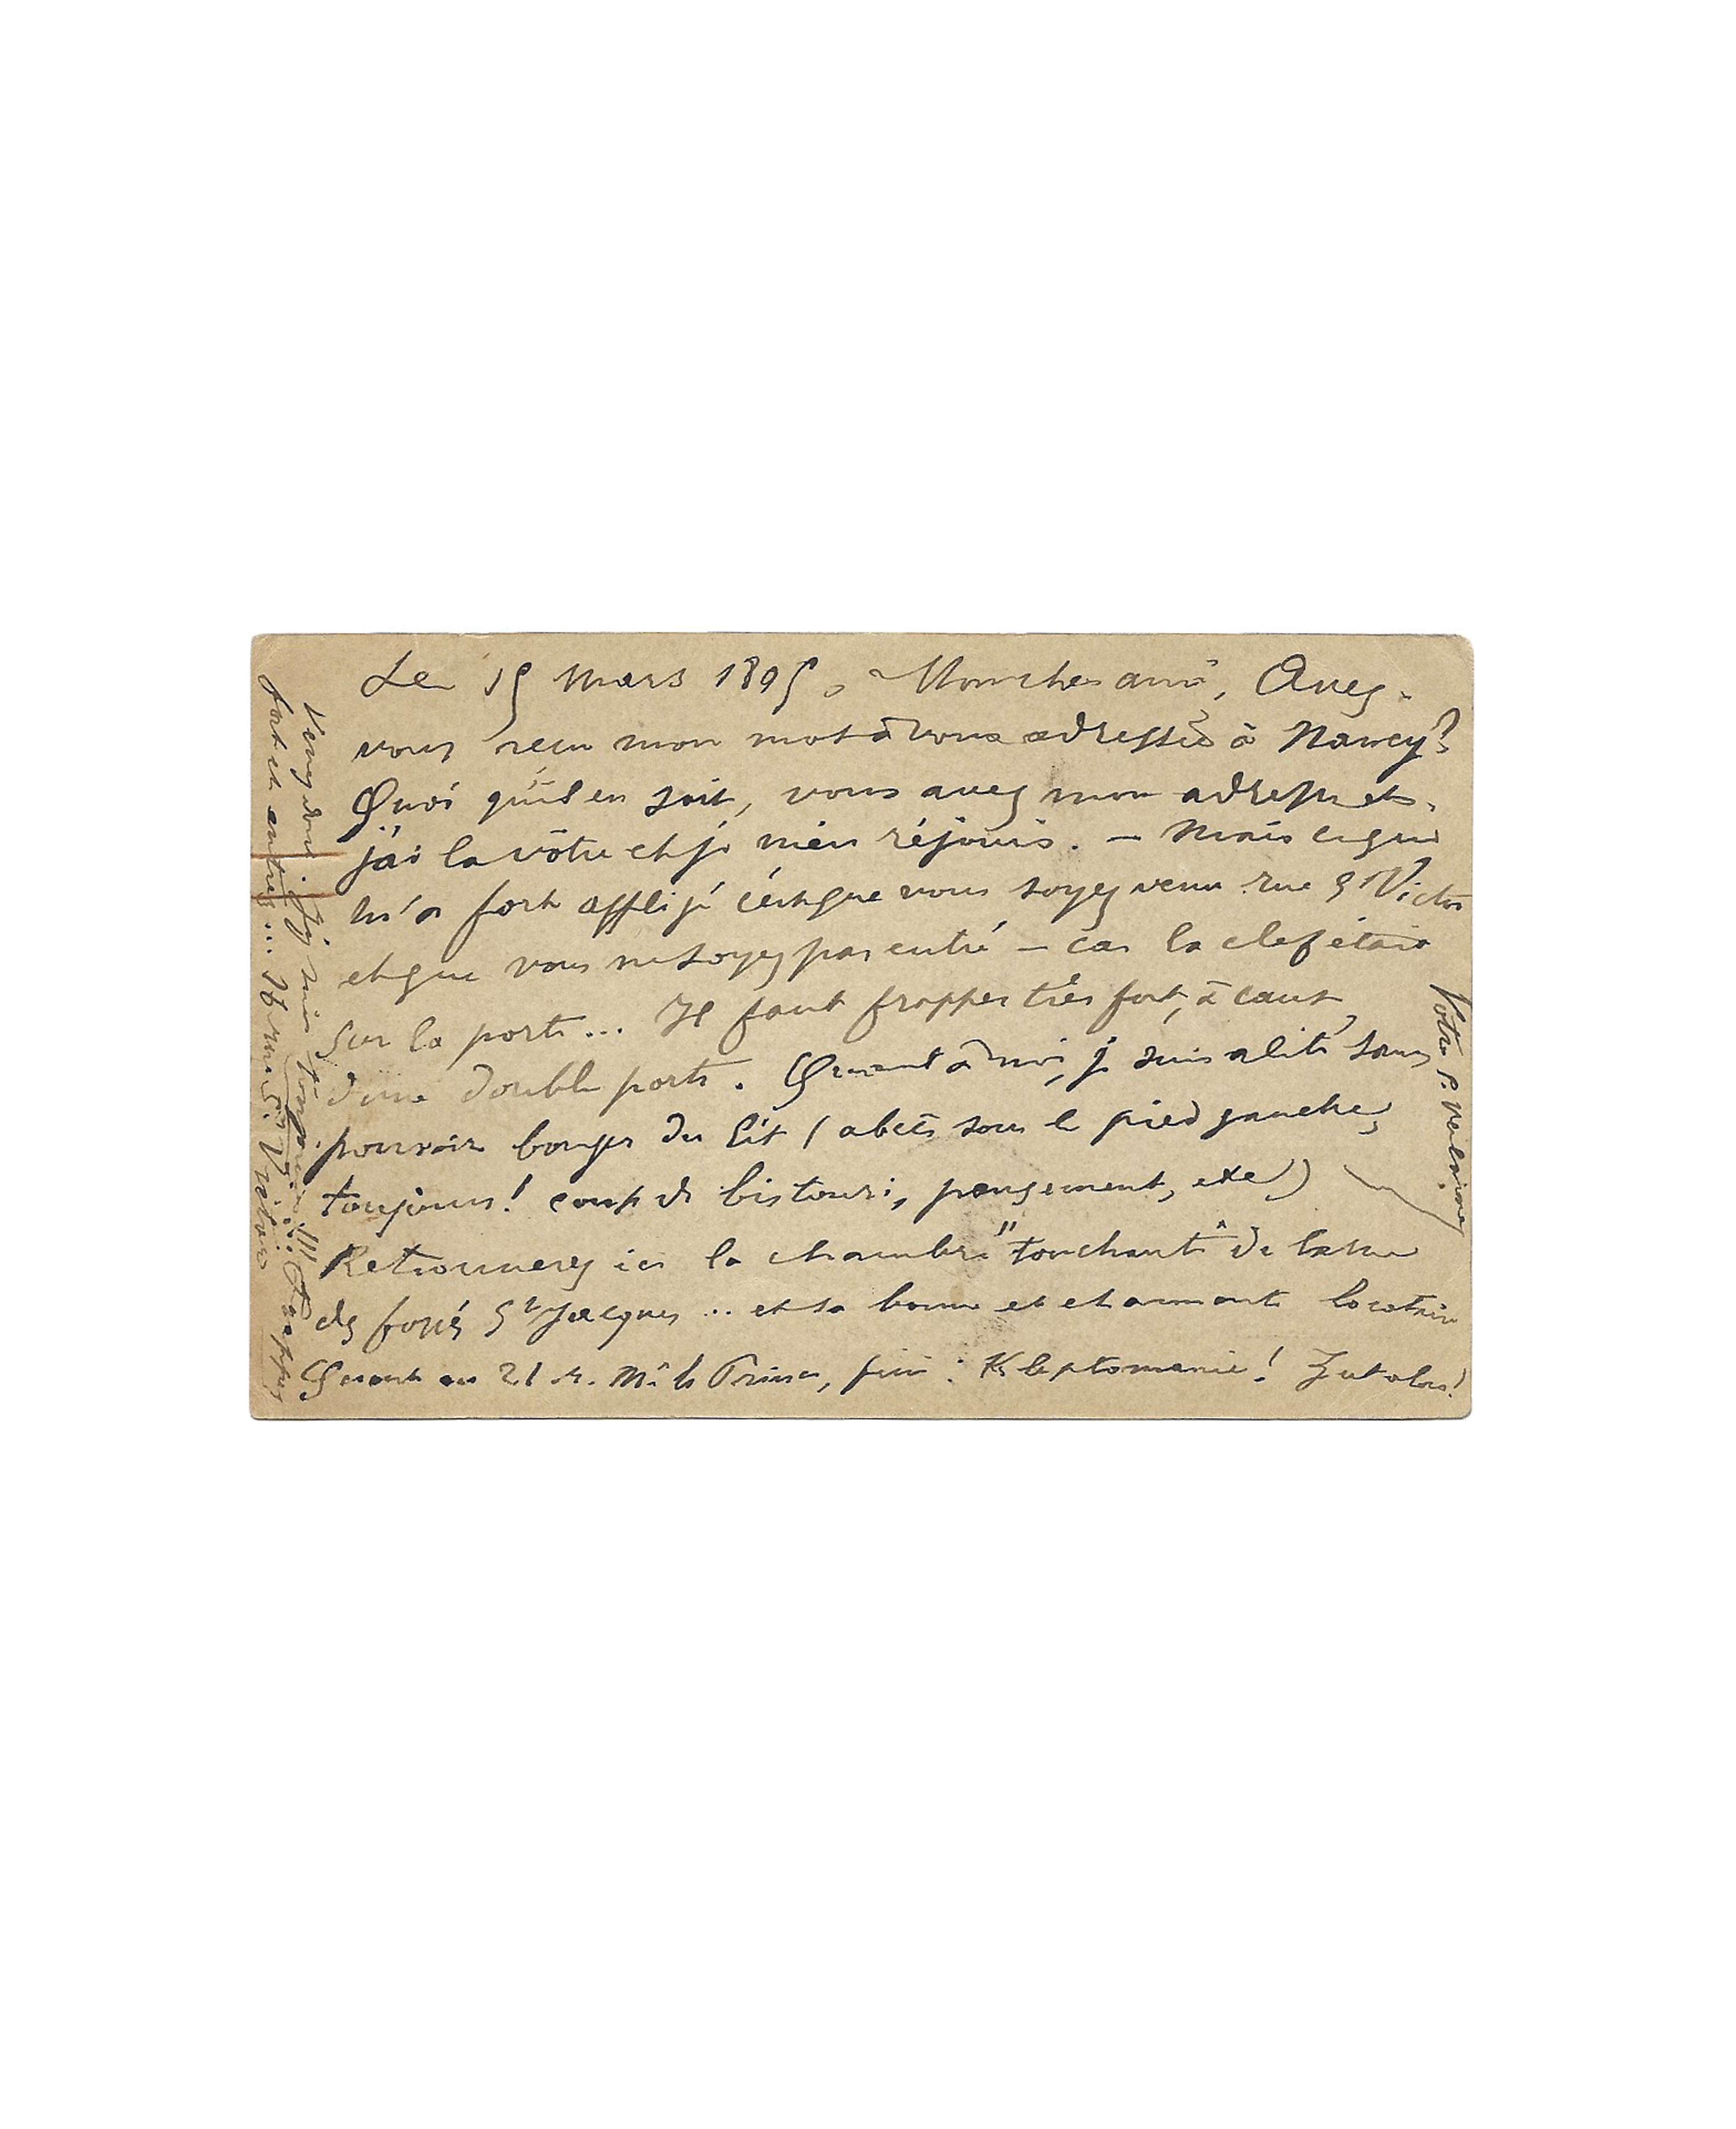 Le 15 Mars 1895. Mon cher ami, Avez-
vous reçu mon mot à vous adressé à Nancy?
Quoi qu'il en soit, vous avez mon adresse et
j'ai la vôtre et je m'en réjouis. — Mais ce qui
m'a fort affligé c'est que vous soyez venu rue St Victor
et que vous ne soyez pas entré — car la clef était
sur la porte... Il faut frapper très fort, à cause
d'une double porte. Quant à moi, je suis alité sans
pouvoir bouger du lit (abcès sous le pied gauche,
toujours! coup de bistouri, pansement, etc)
Retrouverez ici la chambre "touchante" de la rue
des fossés St Jacques .. et sa bonne et charmante locataire
Quant au 21 r. Mr le Prince, fini: Kleptomanie! Zut alors!
Venez donc. J'y suis toujours!!! Frappez
fort et entrez... 16 rue St. Victor
Votre P. Verlaine